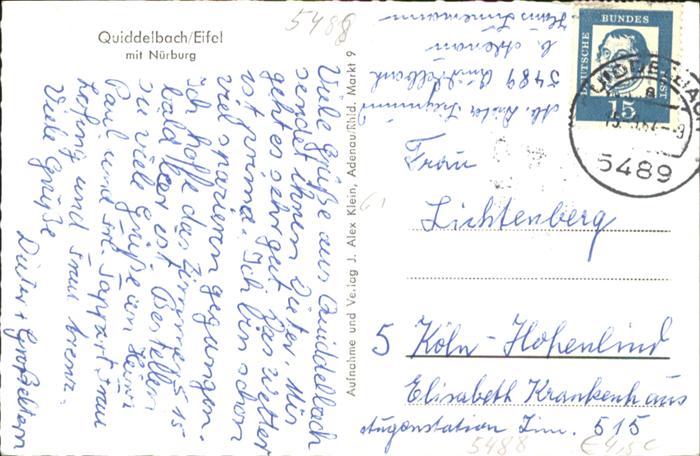 5488
Quiddelbach/Eifel
mit Nürburg
Viele Grüße aus Quiddelbach
sendet Ihnen Dieter. Mir
geht es sehr gut. Das Wetter
ist prima. Ich bin schon
viel spazieren gegangen.
Ich hoffe das Zimmer 515
bald leer ist. Bestellen
Sie viele Grüße an Heinz
Paul und Frl. Tappart Frau
und Frau
Viele Grüße
Dieter + Großeltern
Aufnahme und Verlag J. Alex Klein, Adenau/Rhld. Markt 9
Abs. Dieter
5489 Quiddelbach
b. Adenau
Haus
DEUTSCHE BUNDESPOST
15
QUIDDELBACH
a
5489
Frau
Lichtenberg
5 Köln-Hohenlind
Elisabeth Krankenhaus
Augenstation Zim. 515
5488
€ 4,50